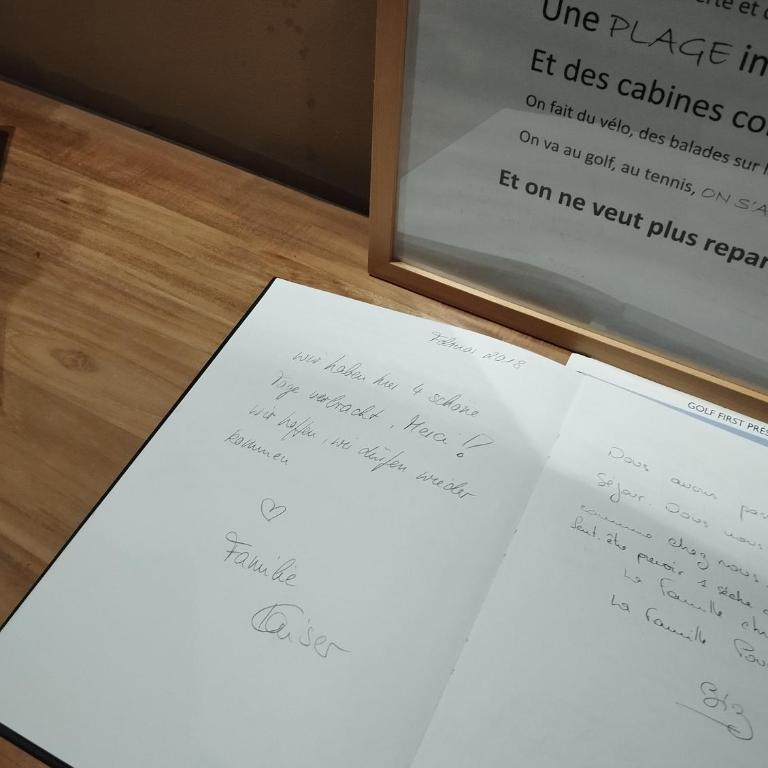 rte et d
Une PLAGE im
Et des cabines co
On fait du vélo, des balades sur l
On va au golf, au tennis, ON S'A
Et on ne veut plus repar
Februar 2018
wir haben hier 4 schöne
Tage verbracht. Merci!
wir hoffen, wir dürfen wieder
kommen
♡
Familie
Kaiser
GOLF FIRST PRÉS
Nous avons pas
Séjour. Nous nous
comme chez nous.
Peut-être prévoir 1 sèche
La famille
La famille
Biz